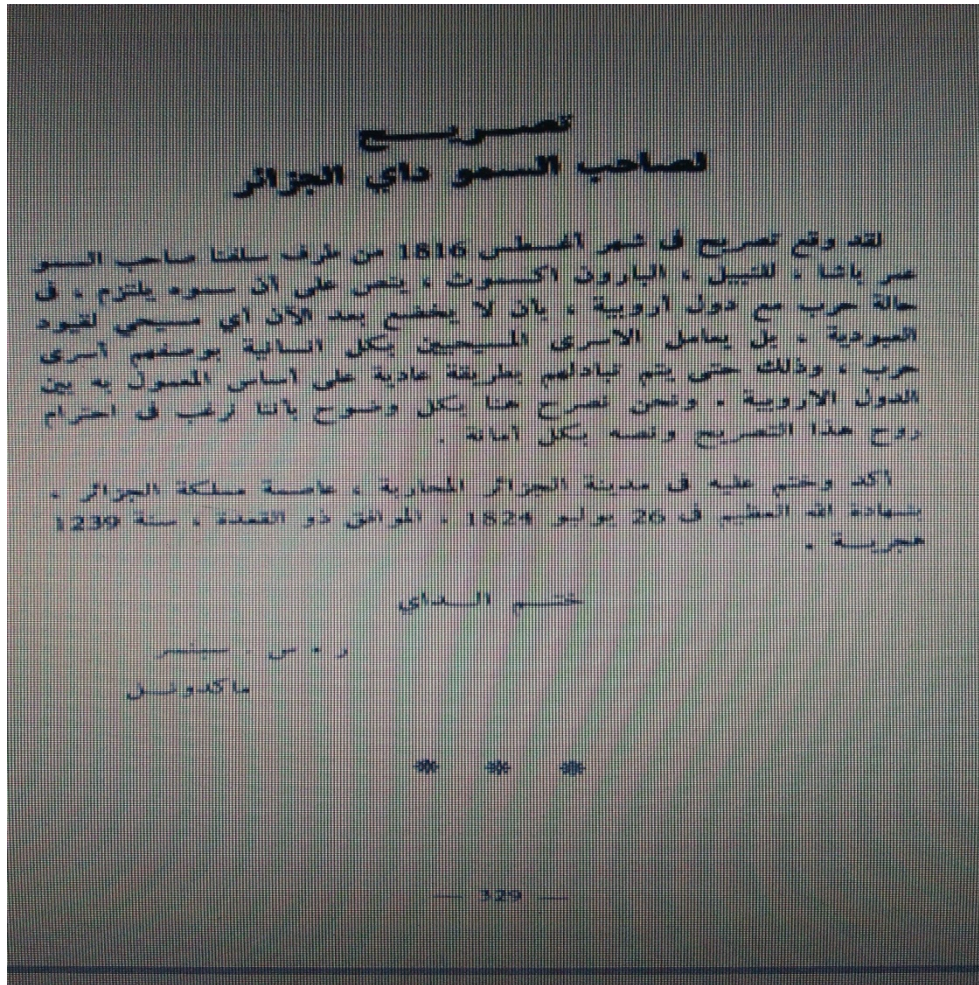 تصريح
لصاحب السمو داي الجزائر
لقد وقع تصريح فى شهر أغسطس 1816 من طرف سلفنا صاحب السمو
عمر باشا ، للنبيل ، البارون اكسموث ، ينص على أن سموه يلتزم ، فى
حالة حرب مع دول أروبية ، بأن لا يخضع بعد الآن أي مسيحي لقيود
العبودية ، بل يعامل الاسرى المسيحيين بكل انسانية بوصفهم أسرى
حرب ، وذلك حتى يتم تبادلهم بطريقة عادية على أساس المعمول به بين
الدول الاروبية . ونحن نصرح هنا بكل وضوح بأننا نرغب فى احترام
روح هذا التصريح ونصه بكل أمانة .
أكد وختم عليه فى مدينة الجزائر المحاربة ، عاصمة مملكة الجزائر ،
بشهادة الله العظيم فى 26 يوليو 1824 ، الموافق ذو القعدة ، سنة 1239
هجرية .
ختم الداى
ر . س . سبنسر
ماكدونل
* * *
— 329 —